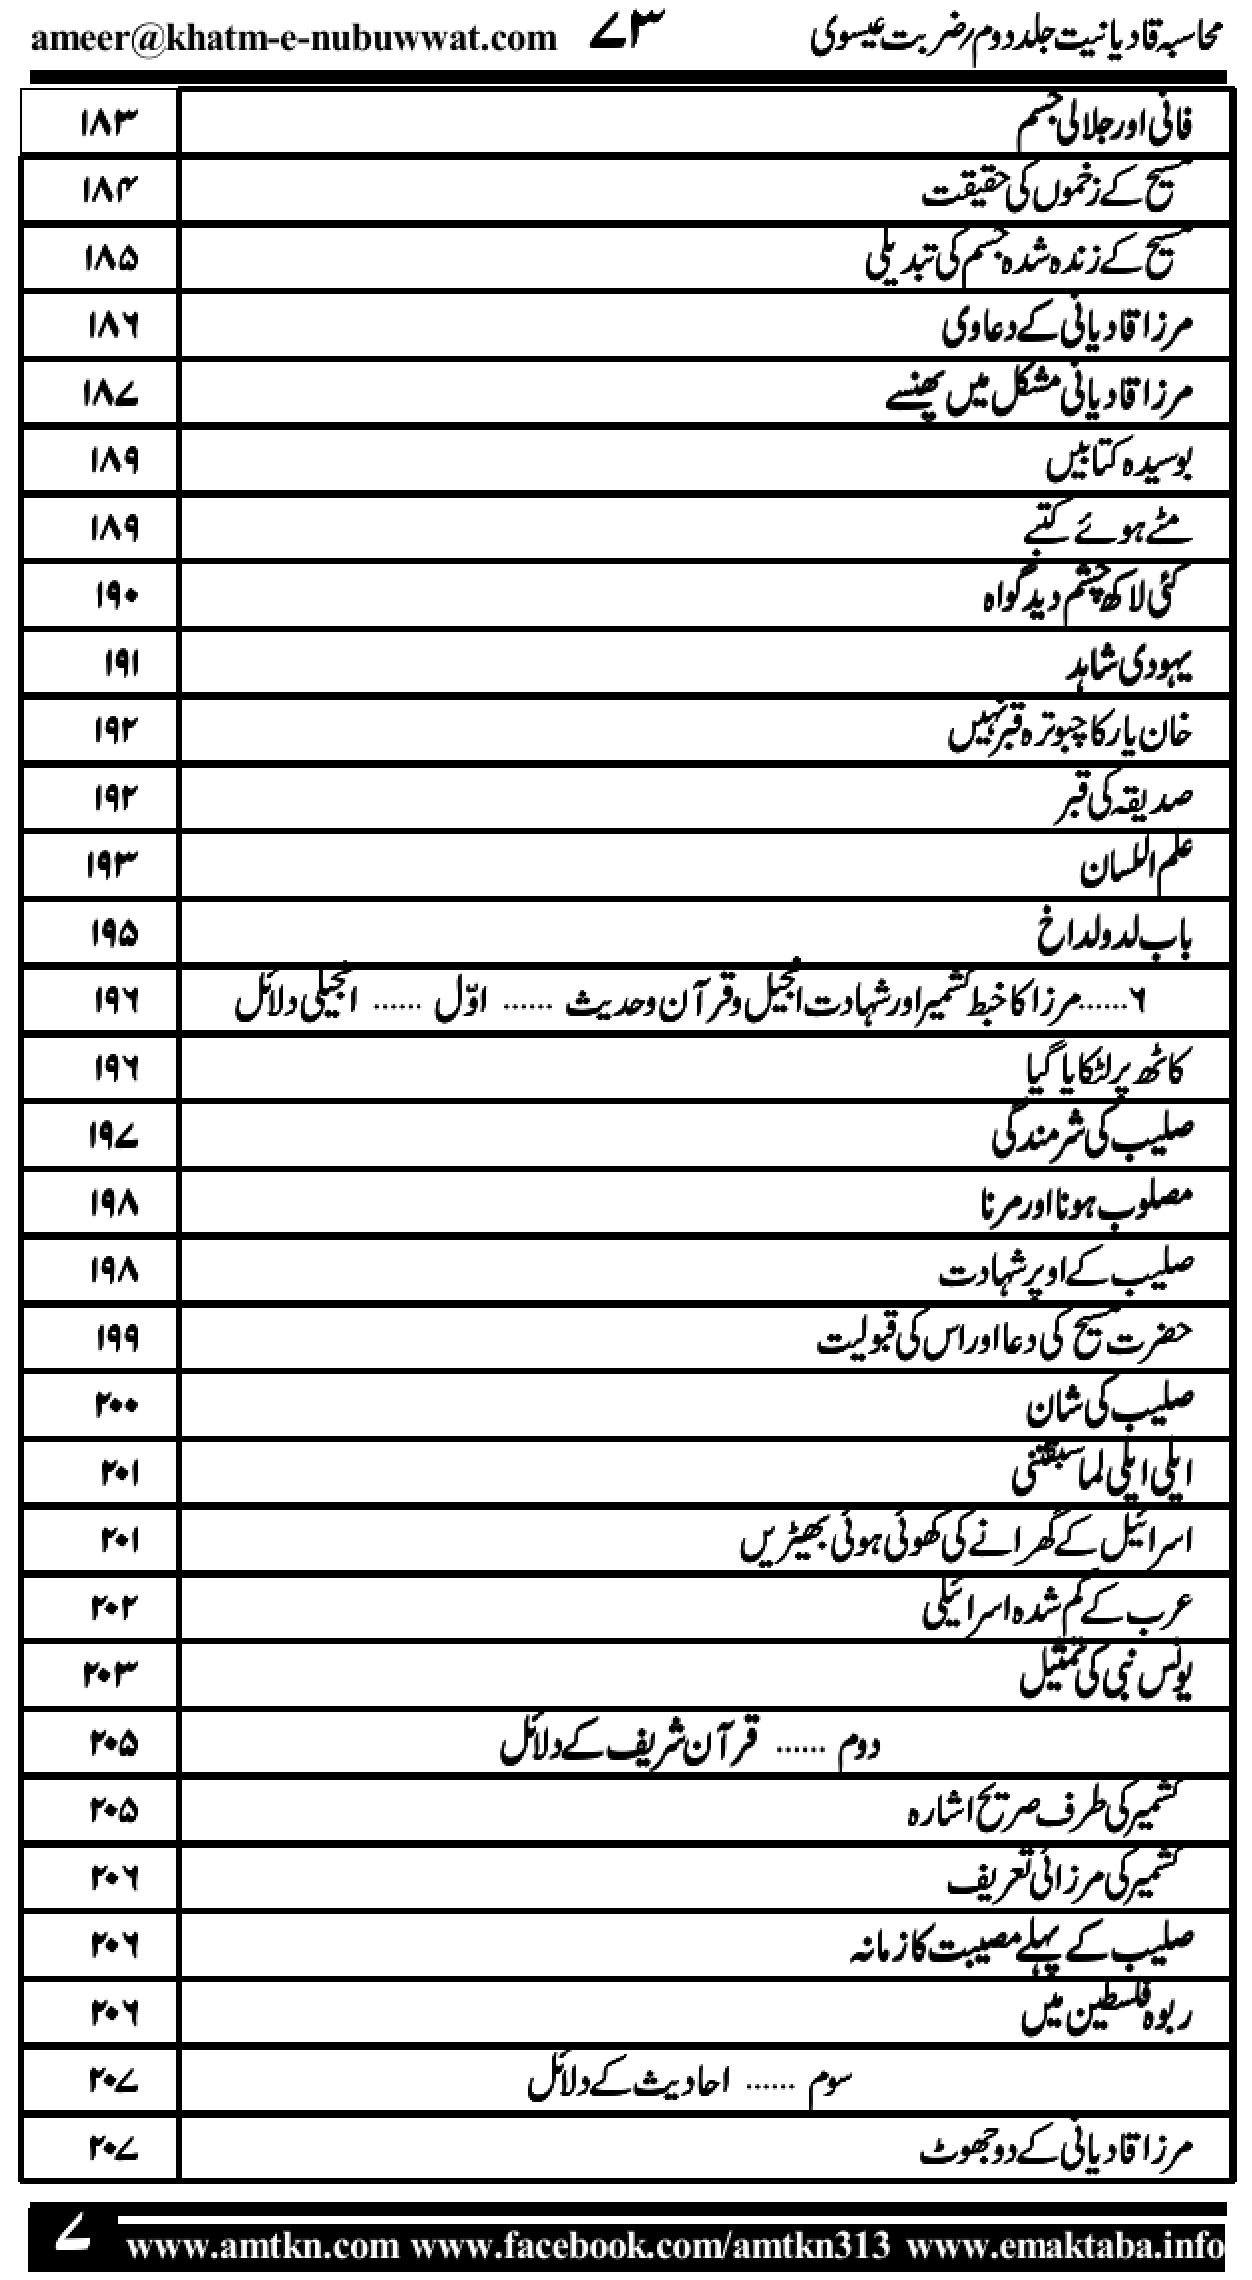 محاسبہ قادیانیت جلد دوم؍ضربت عیسوی ۷۳ ameer@khatm-e-nubuwwat.com
فانی اور جلالی جسم ۱۸۳
مسیح کے زخموں کی حقیقت ۱۸۴
مسیح کے زندہ شدہ جسم کی تبدیلی ۱۸۵
مرزا قادیانی کے دعاوی ۱۸۶
مرزا قادیانی مشکل میں پھنسے ۱۸۷
بوسیدہ کتابیں ۱۸۹
مٹے ہوئے کتبے ۱۸۹
کئی لاکھ چشم دید گواہ ۱۹۰
یہودی شاہد ۱۹۱
خان یار کا چبوترہ قبر نہیں ۱۹۲
صدیقہ کی قبر ۱۹۲
علم اللسان ۱۹۳
باب لد و لداخ ۱۹۵
۶......مرزا کا خبط کشمیر اور شہادت انجیل و قرآن و حدیث ...... اوّل ...... انجیلی دلائل ۱۹۶
کاٹھ پر لٹکایا گیا ۱۹۶
صلیب کی شرمندگی ۱۹۷
مصلوب ہونا اور مرنا ۱۹۸
صلیب کے اوپر شہادت ۱۹۸
حضرت مسیح کی دعا اور اس کی قبولیت ۱۹۹
صلیب کی شان ۲۰۰
ایلی ایلی لما سبقتنی ۲۰۱
اسرائیل کے گھرانے کی کھوئی ہوئی بھیڑیں ۲۰۱
عرب کے گم شدہ اسرائیلی ۲۰۲
یونس نبی کی تمثیل ۲۰۳
دوم ...... قرآن شریف کے دلائل ۲۰۵
کشمیر کی طرف صریح اشارہ ۲۰۵
کشمیر کی مرزائی تعریف ۲۰۶
صلیب کے پہلے مصیبت کا زمانہ ۲۰۶
ربوہ فلسطین میں ۲۰۶
سوم ...... احادیث کے دلائل ۲۰۷
مرزا قادیانی کے دو جھوٹ ۲۰۷
۷ www.amtkn.com www.facebook.com/amtkn313 www.emaktaba.info